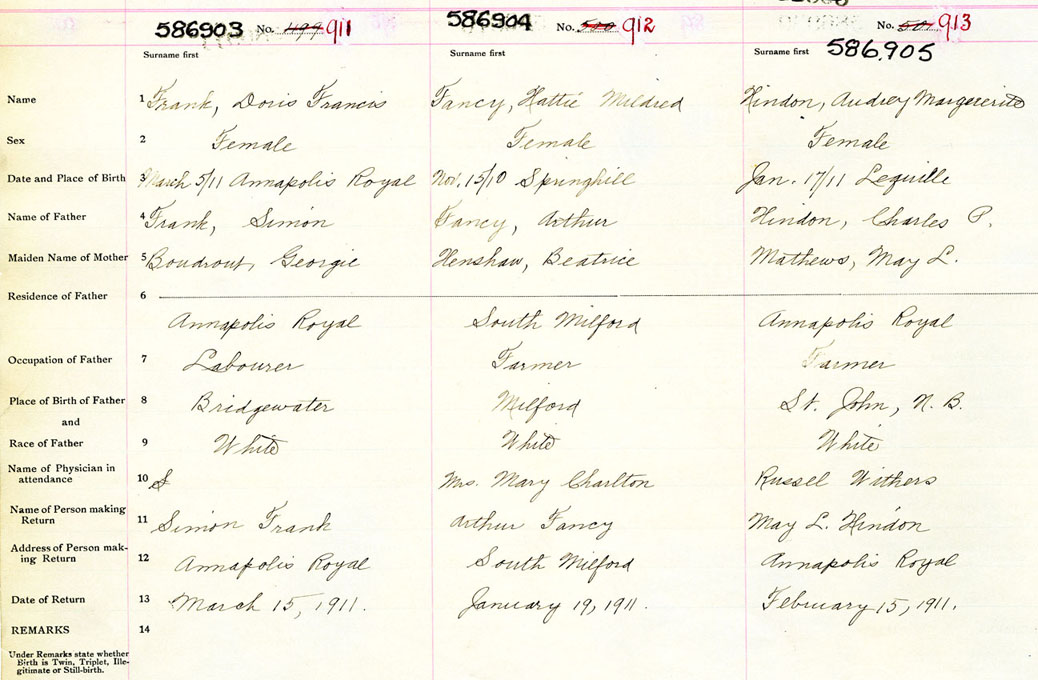 586903 No. 499 911 586904 No. 500 912 No. 501 913
Surname first Surname first Surname first 586905
Name 1 Frank, Doris Francis Fancy, Hattie Mildred Hindon, Audrey Marguerite
Sex 2 Female Female Female
Date and Place of Birth 3 March 5/11 Annapolis Royal Nov. 15/10 Springhill Jan. 17/11 Lequille
Name of Father 4 Frank, Simon Fancy, Arthur Hindon, Charles P.
Maiden Name of Mother 5 Boudrout, Georgie Henshaw, Beatrice Mathews, May L.
Residence of Father 6
Annapolis Royal South Milford Annapolis Royal
Occupation of Father 7 Labourer Farmer Farmer
Place of Birth of Father 8 Bridgewater Milford St. John, N. B.
and
Race of Father 9 White White White
Name of Physician in
attendance 10 S Mrs. Mary Charlton Russel Withers
Name of Person making
Return 11 Simon Frank Arthur Fancy May L. Hindon
Address of Person mak-
ing Return 12 Annapolis Royal South Milford Annapolis Royal
Date of Return 13 March 15, 1911. January 19, 1911. February 15, 1911.
REMARKS 14
Under Remarks state whether
Birth is Twin, Triplet, Ille-
gitimate or Still-birth.